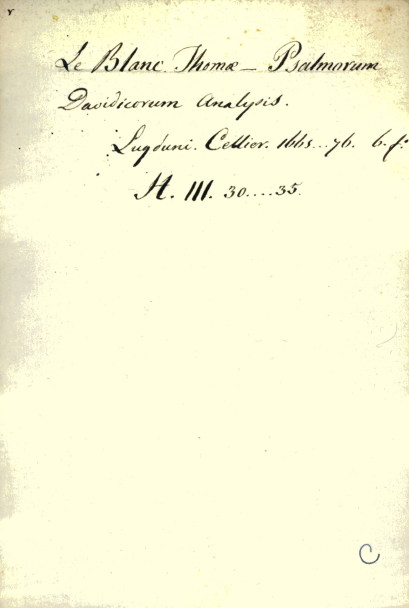 Le Blanc. Thomæ – Psalmorum
Davidicorum Analysis.
Lugduni. Cellier. 1665...76. 6. f.
H. III. 30....35.
C